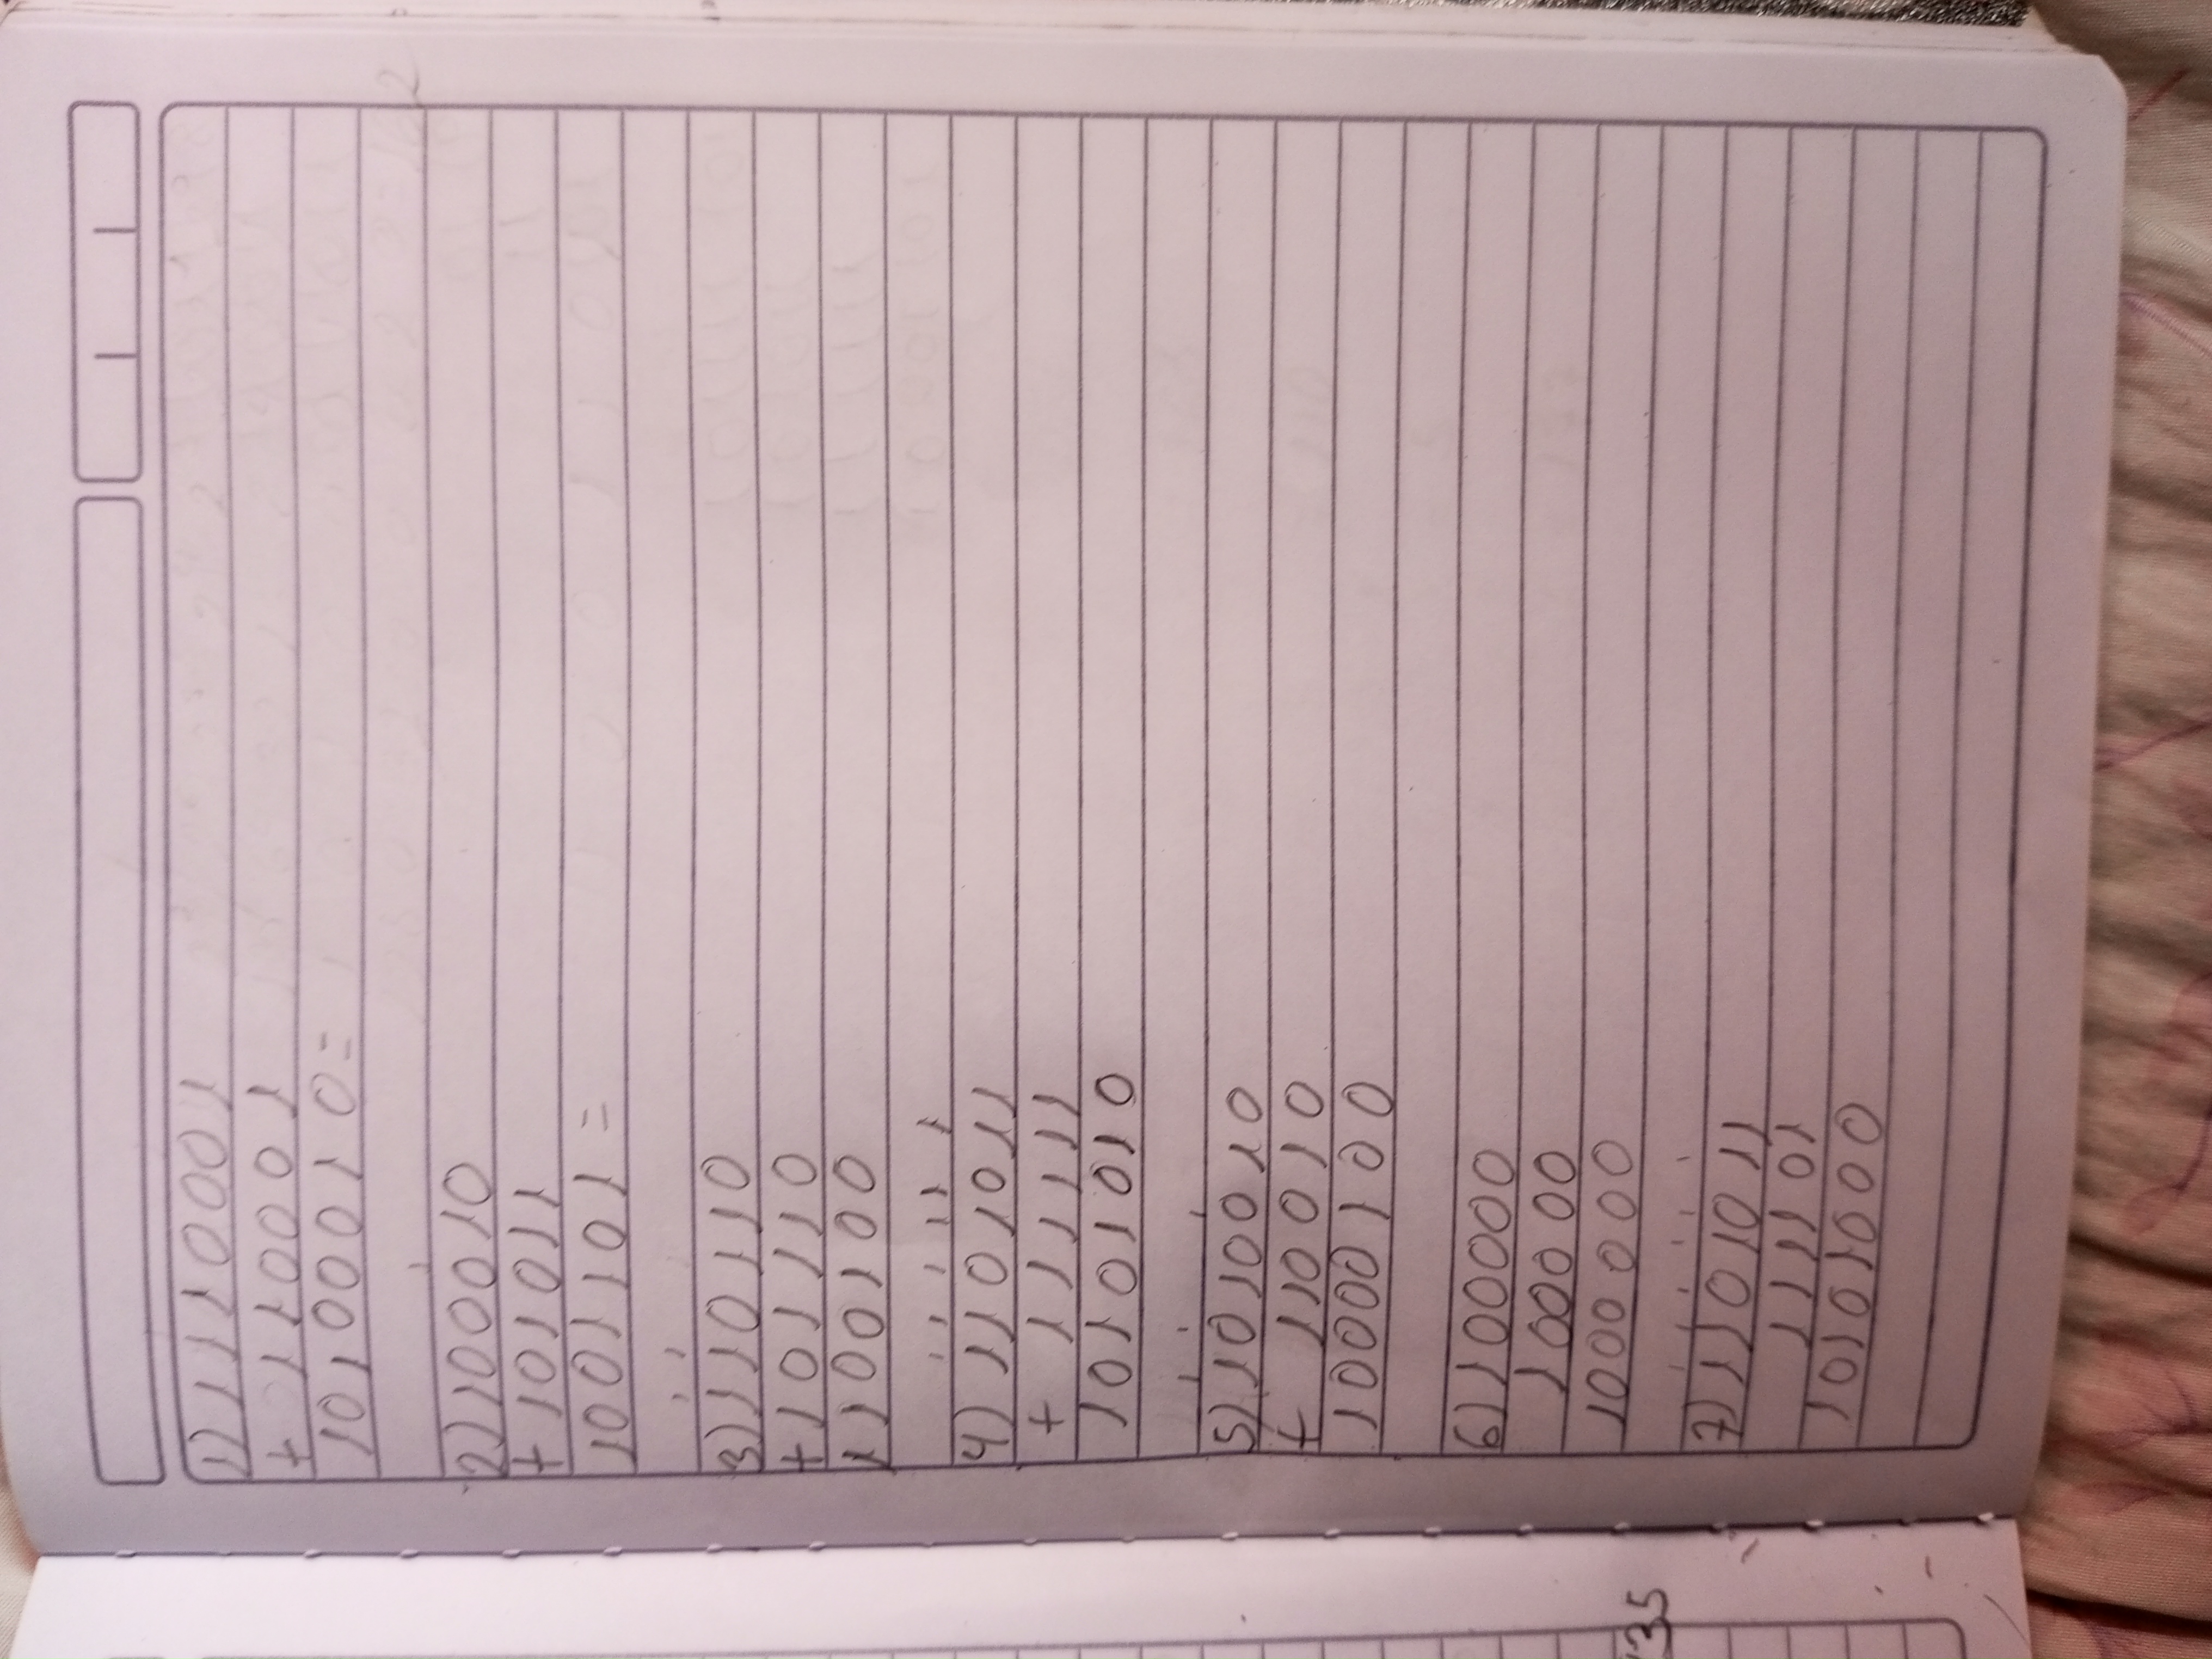 1) 1110001
+ 110001
10100010=
2) 100010
+ 101011
1001101 =
3) 110110
+ 101110
1100100
1 1 1 1 1 1
4) 1101011
+ 111111
10101010
5) 1010010
+ 110010
10000100
6) 100000
100000
1000000
7) 1101011
111101
10101000
35